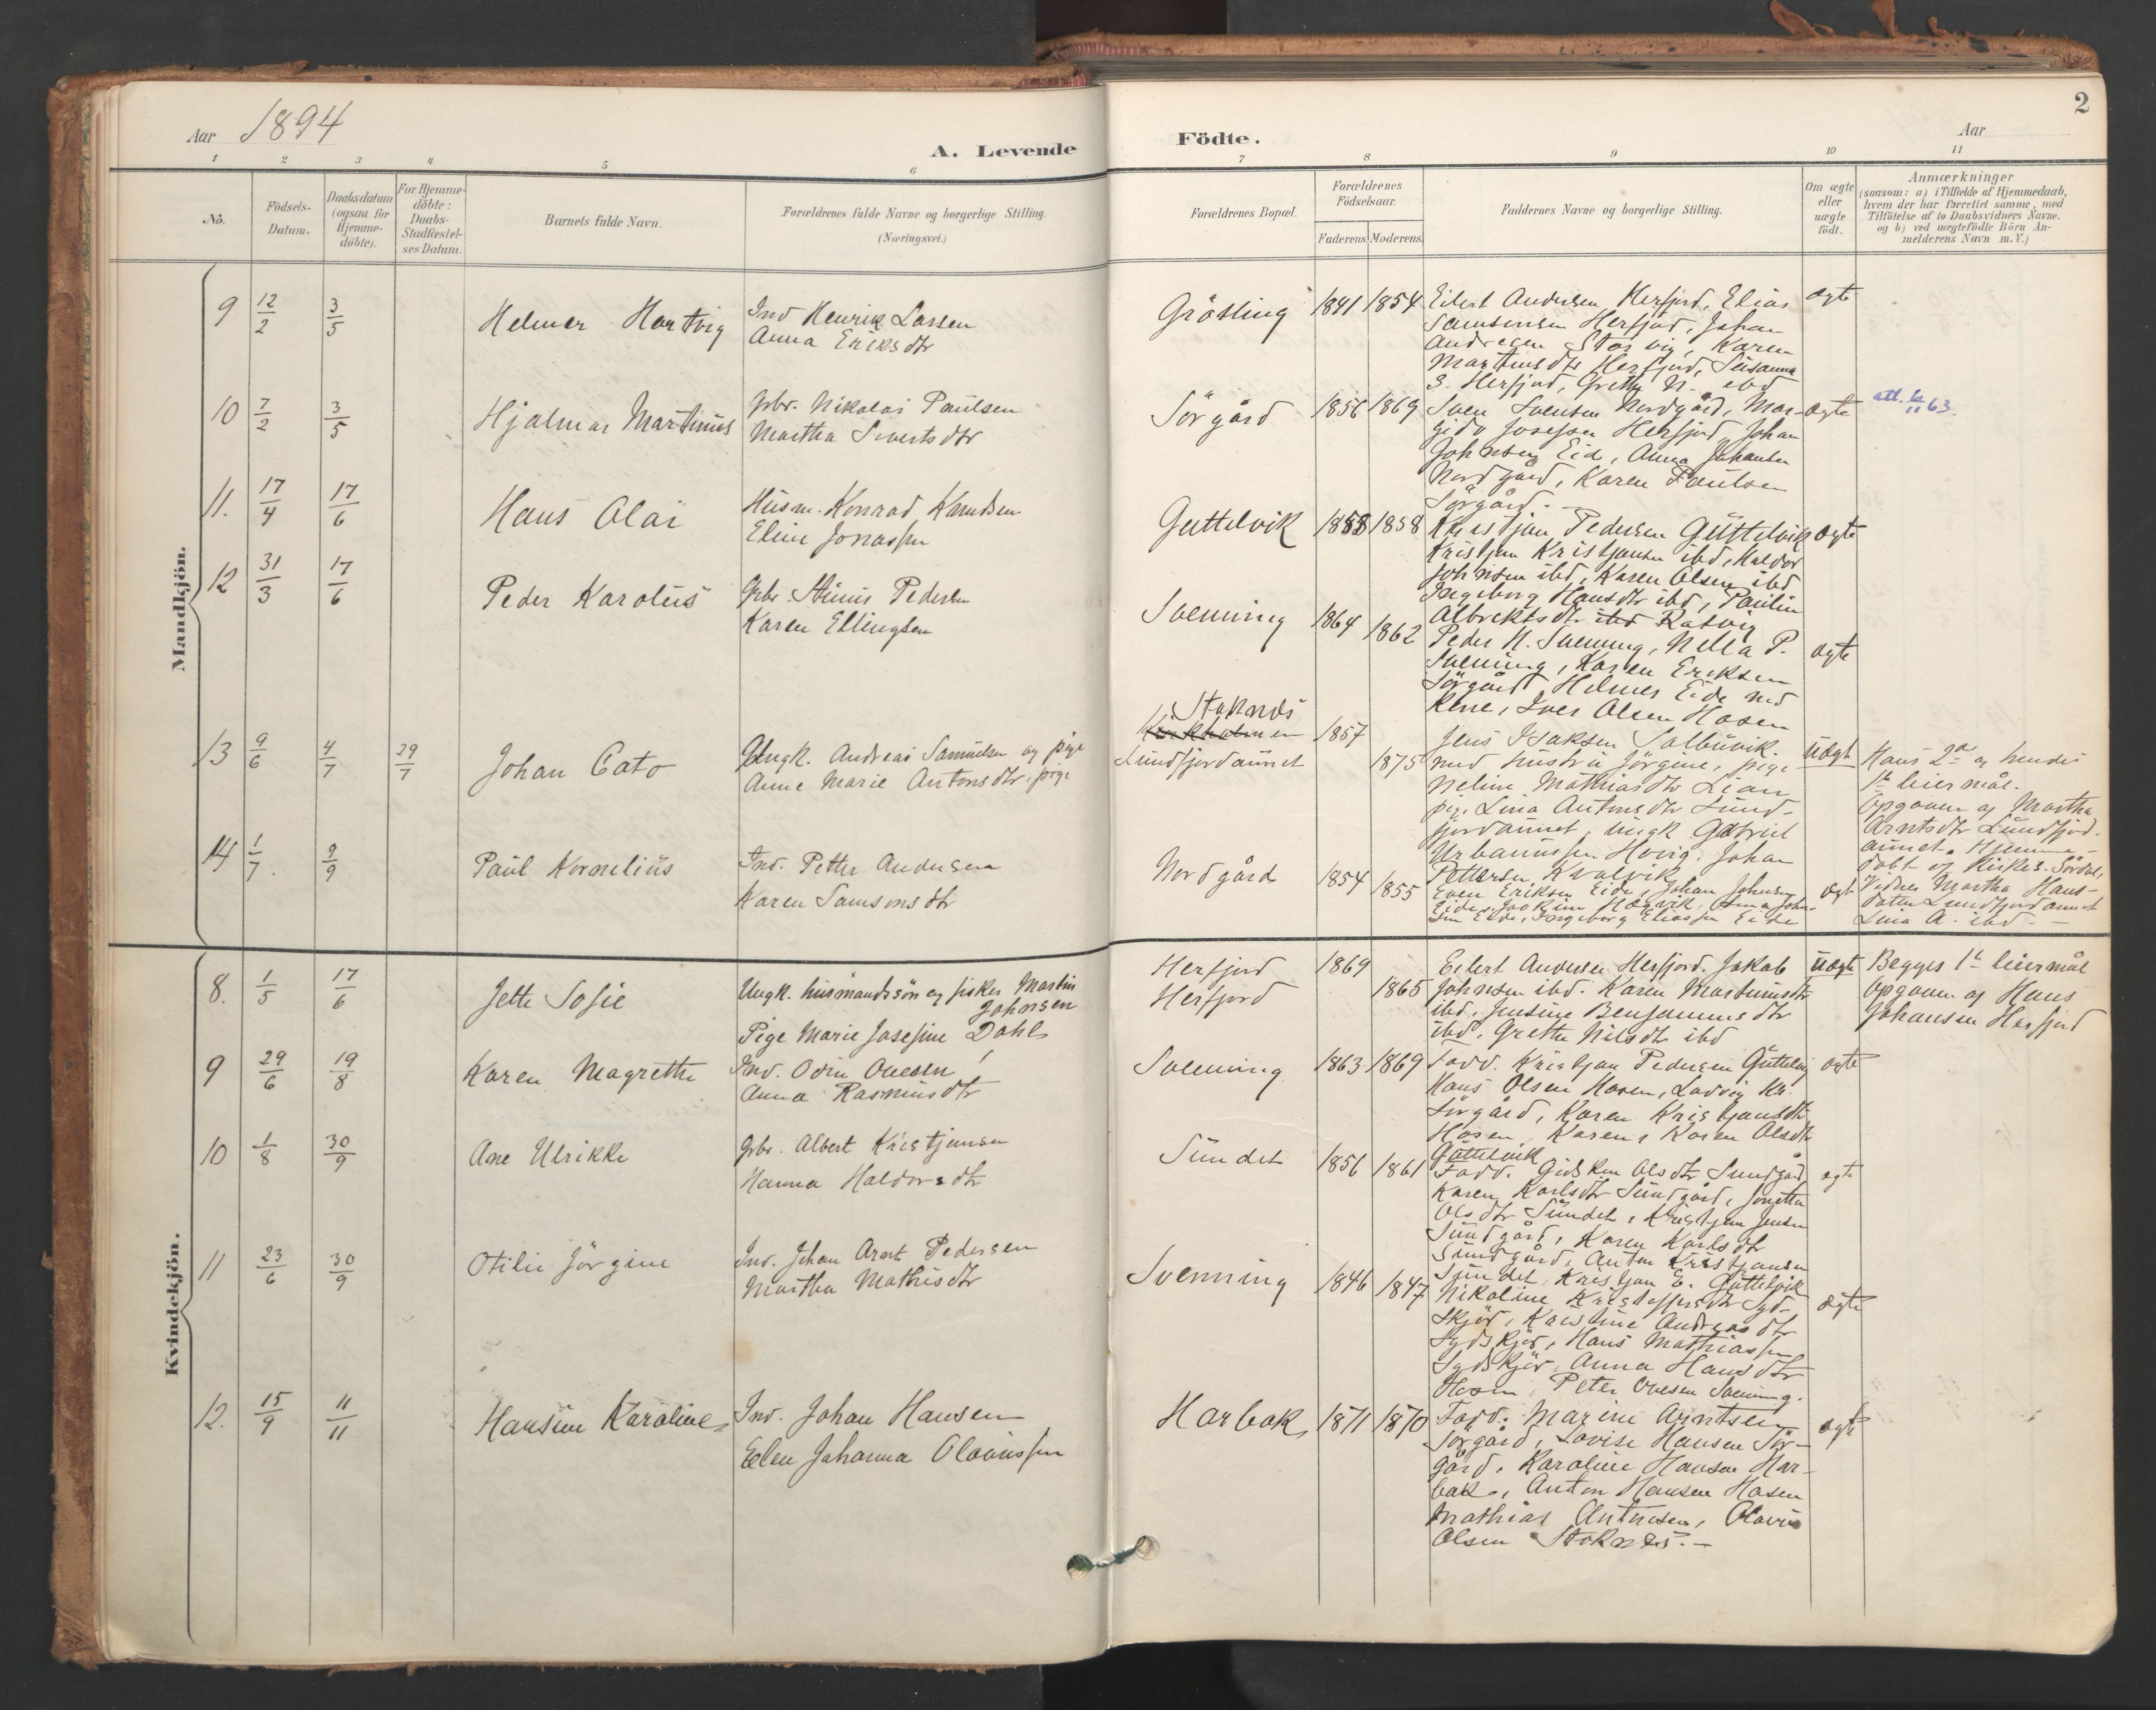 Aar 1894
A. Levende
Födte.
Aar
2
1 2 3 4 5 6 7 8 9 10 11
No.
Födsels-
Datum.
Daabsdatum
(ogsaa for
Hjemme-
döbte).
For Hjemme-
döbte:
Daabs-
Stadfestel-
ses Datum.
Barnets fulde Navn.
Forældrenes fulde Navne og borgerlige Stilling.
(Næringsvei.)
Forældrenes Bopæl.
Forældrenes
Födselsaar.
Faderens. Moderens.
Faddernes Navne og borgerlige Stilling.
Om ægte
eller
uægte
födt.
Anmærkninger
(saasom: a) i Tilfælde af Hjemmedaab,
hvem der har forrettet samme, med
Tilföielse af to Daabsvidners Navne.
og b) ved uægtefödte Börn An-
melderens Navn m.V.)
Mandkjön.
9 12/2 3/5 Helmer Hartvig
Ind Henrik Larsen
Anna Eriksdtr
Grötling 1841 1854
Eilert Andersen Herfjord, Elias
Samsonsen Herfjord, Johan
Andresen Storvig, Karen
Martinsdtr Herfjord, Susanna
S. Herfjord, Grethe N. ibd
ægte
10 7/2 3/5 Hjalmar Martinus
Gbr. Nikolai Paulsen
Martha Sivertsdtr
Sörgård 1856 1869
Sven Svensen Nordgård, Mar-
Josefsen Herfjord, Johan
Johnsen Eid, Anna Johansen
Nordgård, Karen Paulsen
Sörgård.
ægte
att. 6/11 63.
11. 17/4 17/6 Hans Olai
Husm. Konrad Knudsen
Eline Jonassen
Guttelvik 1858 1858
Kristjan Pedersen Guttelvik
Kristjan Kristjansen ibd, Haldor
Johnsen ibd, Karen Olsen ibd
Ingeborg Hansdtr ibd, Paulin
Albrektsdtr ibd Ratvig
ægte
12 31/3 17/6 Peder Karolus
Gbr. Pedersen
Karen Ellingsen
Svenning 1864 1862
Peder N. Svenning, Nella P.
Svenning, Karen Eriksen
Sörgård Helmer Eide ned
Rene, Iver Olsen Hosen
ægte
13 9/6 4/7 29/7 Johan Cato
Ungk. Andreas Samuelsen og pige
Anne Marie Antonsdtr, pige
Stoknes
Sundfjordaunet 1857 1875
Jens Isaksen Salbuvik.
med hustru Jörgine, pige
Neline Mathiasdtr Lian
pige Lina Antonsdtr Sund-
fjordaunet, ungk Gabriel
Urbanussen Hövig, Johan
Pettersen Kvalvik
Uægt
Hans 2det og hendes
1te leiermål.
Opgaven af Martha
Arntsdtr Sundfjord-
aunet. Hjemme-
döbt af Kirkes. Sördal,
Vidner Martha Hans-
datter Sundfjordaunet
Lina A. ibd. -
14 1/7. 9/9 Paul Kornelius
Ind. Petter Andersen
Karen Samsonsdtr
Nordgård 1854 1855
Even Eriksen Eide, Johan Johnsen
Eide, Joakim Hövik, Anna John-
sen Eide, Ingeborg Eliassen Eide
ægt
Kvindekjön.
8. 1/5 17/6 Jette Sofie
Ungk. husmandssön og fisker Martin
Johnsen
Pige Marie Josefine Dahl
Herfjord 1869
Herfjord 1865
Eilert Andersen Herfjord. Jakob
Johnsen ibd. Karen Martinusdtr
ibd, Jensine Benjaminsdtr
ibd, Grethe Nilsdtr ibd
Uægte
Begges 1te leiermål
Opgaven af Hans
Johansen Herfjord
9 29/6 19/8 Karen Magrethe
Ind. Odin Ovesen
Anna Rasmusdtr
Svenning 1863 1869
Fadd. Kristjan Pedersen Guttelvig
Hans Olsen Hosen, Ludvig Kr.
Sörgård, Karen Kristjansdtr
Hosen, Karen, Karen Olsdtr
Guttelvik
ægte
10 1/8 30/9 Ane Ulrikke
Gbr. Albert Kristjansen
Hanna Haldorsdtr
Sundet 1856 1861
Fadd. Gidsken Olsdtr Sundgård
Karen Karlsdtr Sundgård, Jonetta
Olsdtr Sundet, Kristjan Jensen
Sundgård, Karen Karlsdtr
Sundgård, Anton Kristjansen
Sundet, Kristjan E. Guttelvik
ægte
11 23/6 30/9 Otilie Jörgine
Ind. Johan Arnt Pedersen
Martha Mathisdtr
Svenning 1846 1847
Nikoline Kristoffersdtr Syd-
skjör, Kristine Andreasdtr
Sydskjör, Hans Mathiassen
Sydskjör, Anna Hansdtr
Hosen, Peter Ovesen Svenning.
ægte
12. 15/9 11/11 Hansine Karoline
Ind. Johan Hansen
Elen Johanna Olavussen
Harbak 1871 1870
Fadd. Marine Arntsen
Sörgård, Lovise Hansen Sör-
gård, Karoline Hansen Har-
bak, Anton Hansen Hosen
Mathias Antonsen, Olavus
Olsen Stoknes. -
ægte